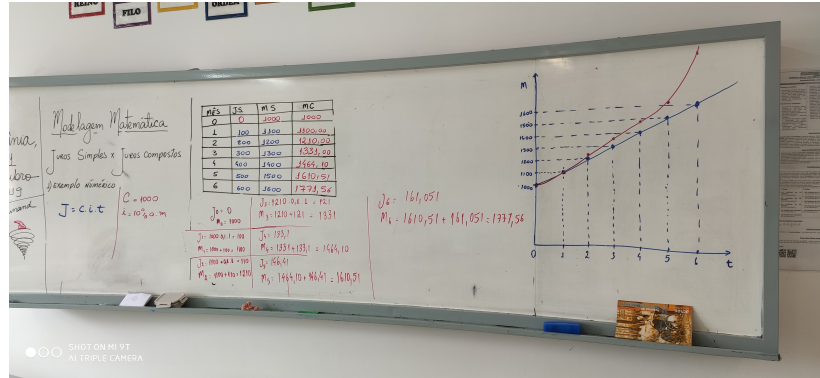 REINO
FILO
ORDEM
Modelagem Matemática
Juros Simples x Juros Compostos
1) Exemplo numérico
J = C.i.t
C = 1000
i = 10% a.m
MÊS JS MS MC
0 0 1000 1000
1 100 1100 1100,00
2 200 1200 1210,00
3 300 1300 1331,00
4 400 1400 1464,10
5 500 1500 1610,51
6 600 1600 1771,56
J0 = 0
M0 = 1000
J1 = 1000.0,1.1 = 100
M1 = 1000 + 100 = 1100
J3 = 1210.0,1.1 = 121
M3 = 1210 + 121 = 1331
J4 = 133,1
M4 = 1331 + 133,1 = 1464,10
J5 = 146,41
M5 = 1464,10 + 146,41 = 1610,51
J6 = 161,051
M6 = 1610,51 + 161,051 = 1771,56
M
1600
1500
1400
1300
1200
1100
1000
0 1 2 3 4 5 6 t
SHOT ON MI 9T
AI TRIPLE CAMERA